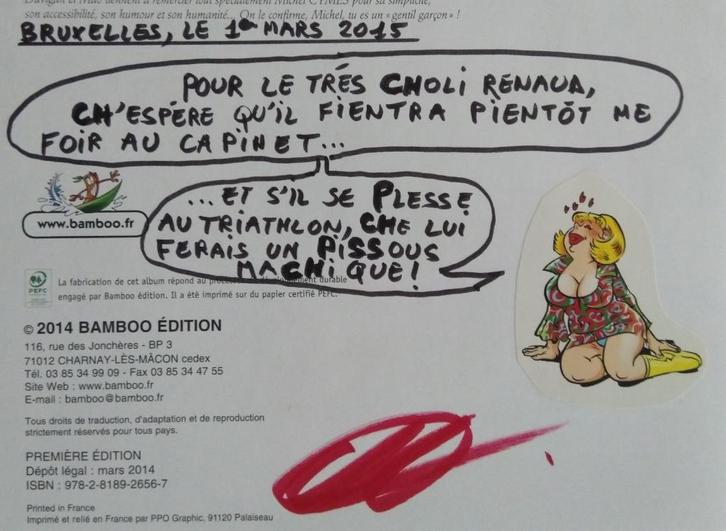 son accessibilité, son humour et son humanité... On le confirme, Michel, tu es un « gentil garçon » !
BRUXELLES, LE 1er MARS 2015
POUR LE TRÉS CHOLI RENAUD,
CH'ESPÉRE QU'IL FIENTRA PIENTÔT ME
FOIR AU CAPINET...
...ET S'IL SE PLESSE
AU TRIATHLON, CHE LUI
FERAIS UN PISSOUS
MACHIQUE!
www.bamboo.fr
PEFC
La fabrication de cet album répond au durable
engagé par Bamboo édition. Il a été imprimé sur du papier certifié PEFC.
© 2014 BAMBOO ÉDITION
116, rue des Jonchères - BP 3
71012 CHARNAY-LÈS-MÂCON cedex
Tél. 03 85 34 99 09 - Fax 03 85 34 47 55
Site Web : www.bamboo.fr
E-mail : bamboo@bamboo.fr
Tous droits de traduction, d'adaptation et de reproduction
strictement réservés pour tous pays.
PREMIÈRE ÉDITION
Dépôt légal : mars 2014
ISBN : 978-2-8189-2656-7
Printed in France
Imprimé et relié en France par PPO Graphic, 91120 Palaiseau